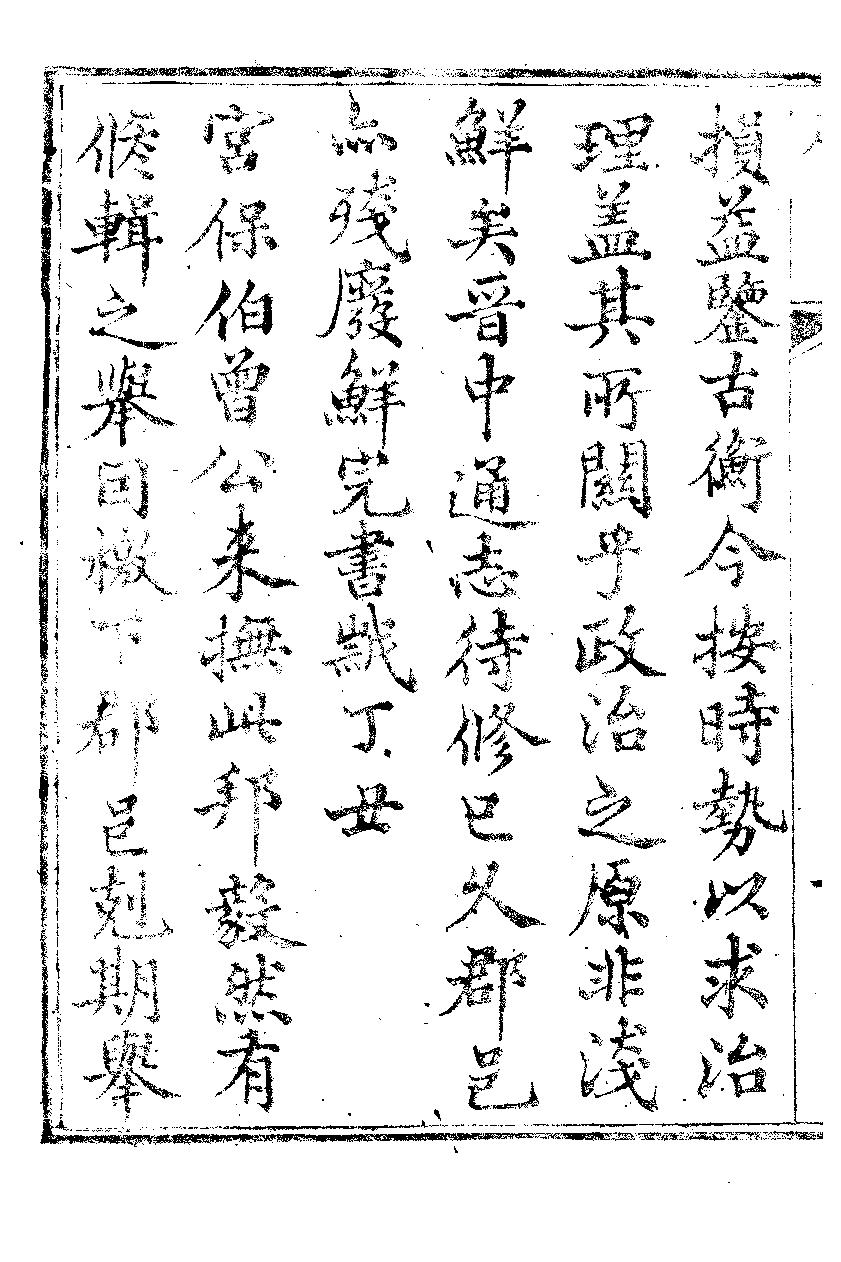 損益鑒古衡今按時勢以求治
理盖其所關乎政治之原非淺
鮮矣晋中通志待修已久郡邑
亦殘廢鮮完書歲丁丑
宮保伯曾公来撫此邦毅然有
修輯之舉囙檄下郡邑剋期舉